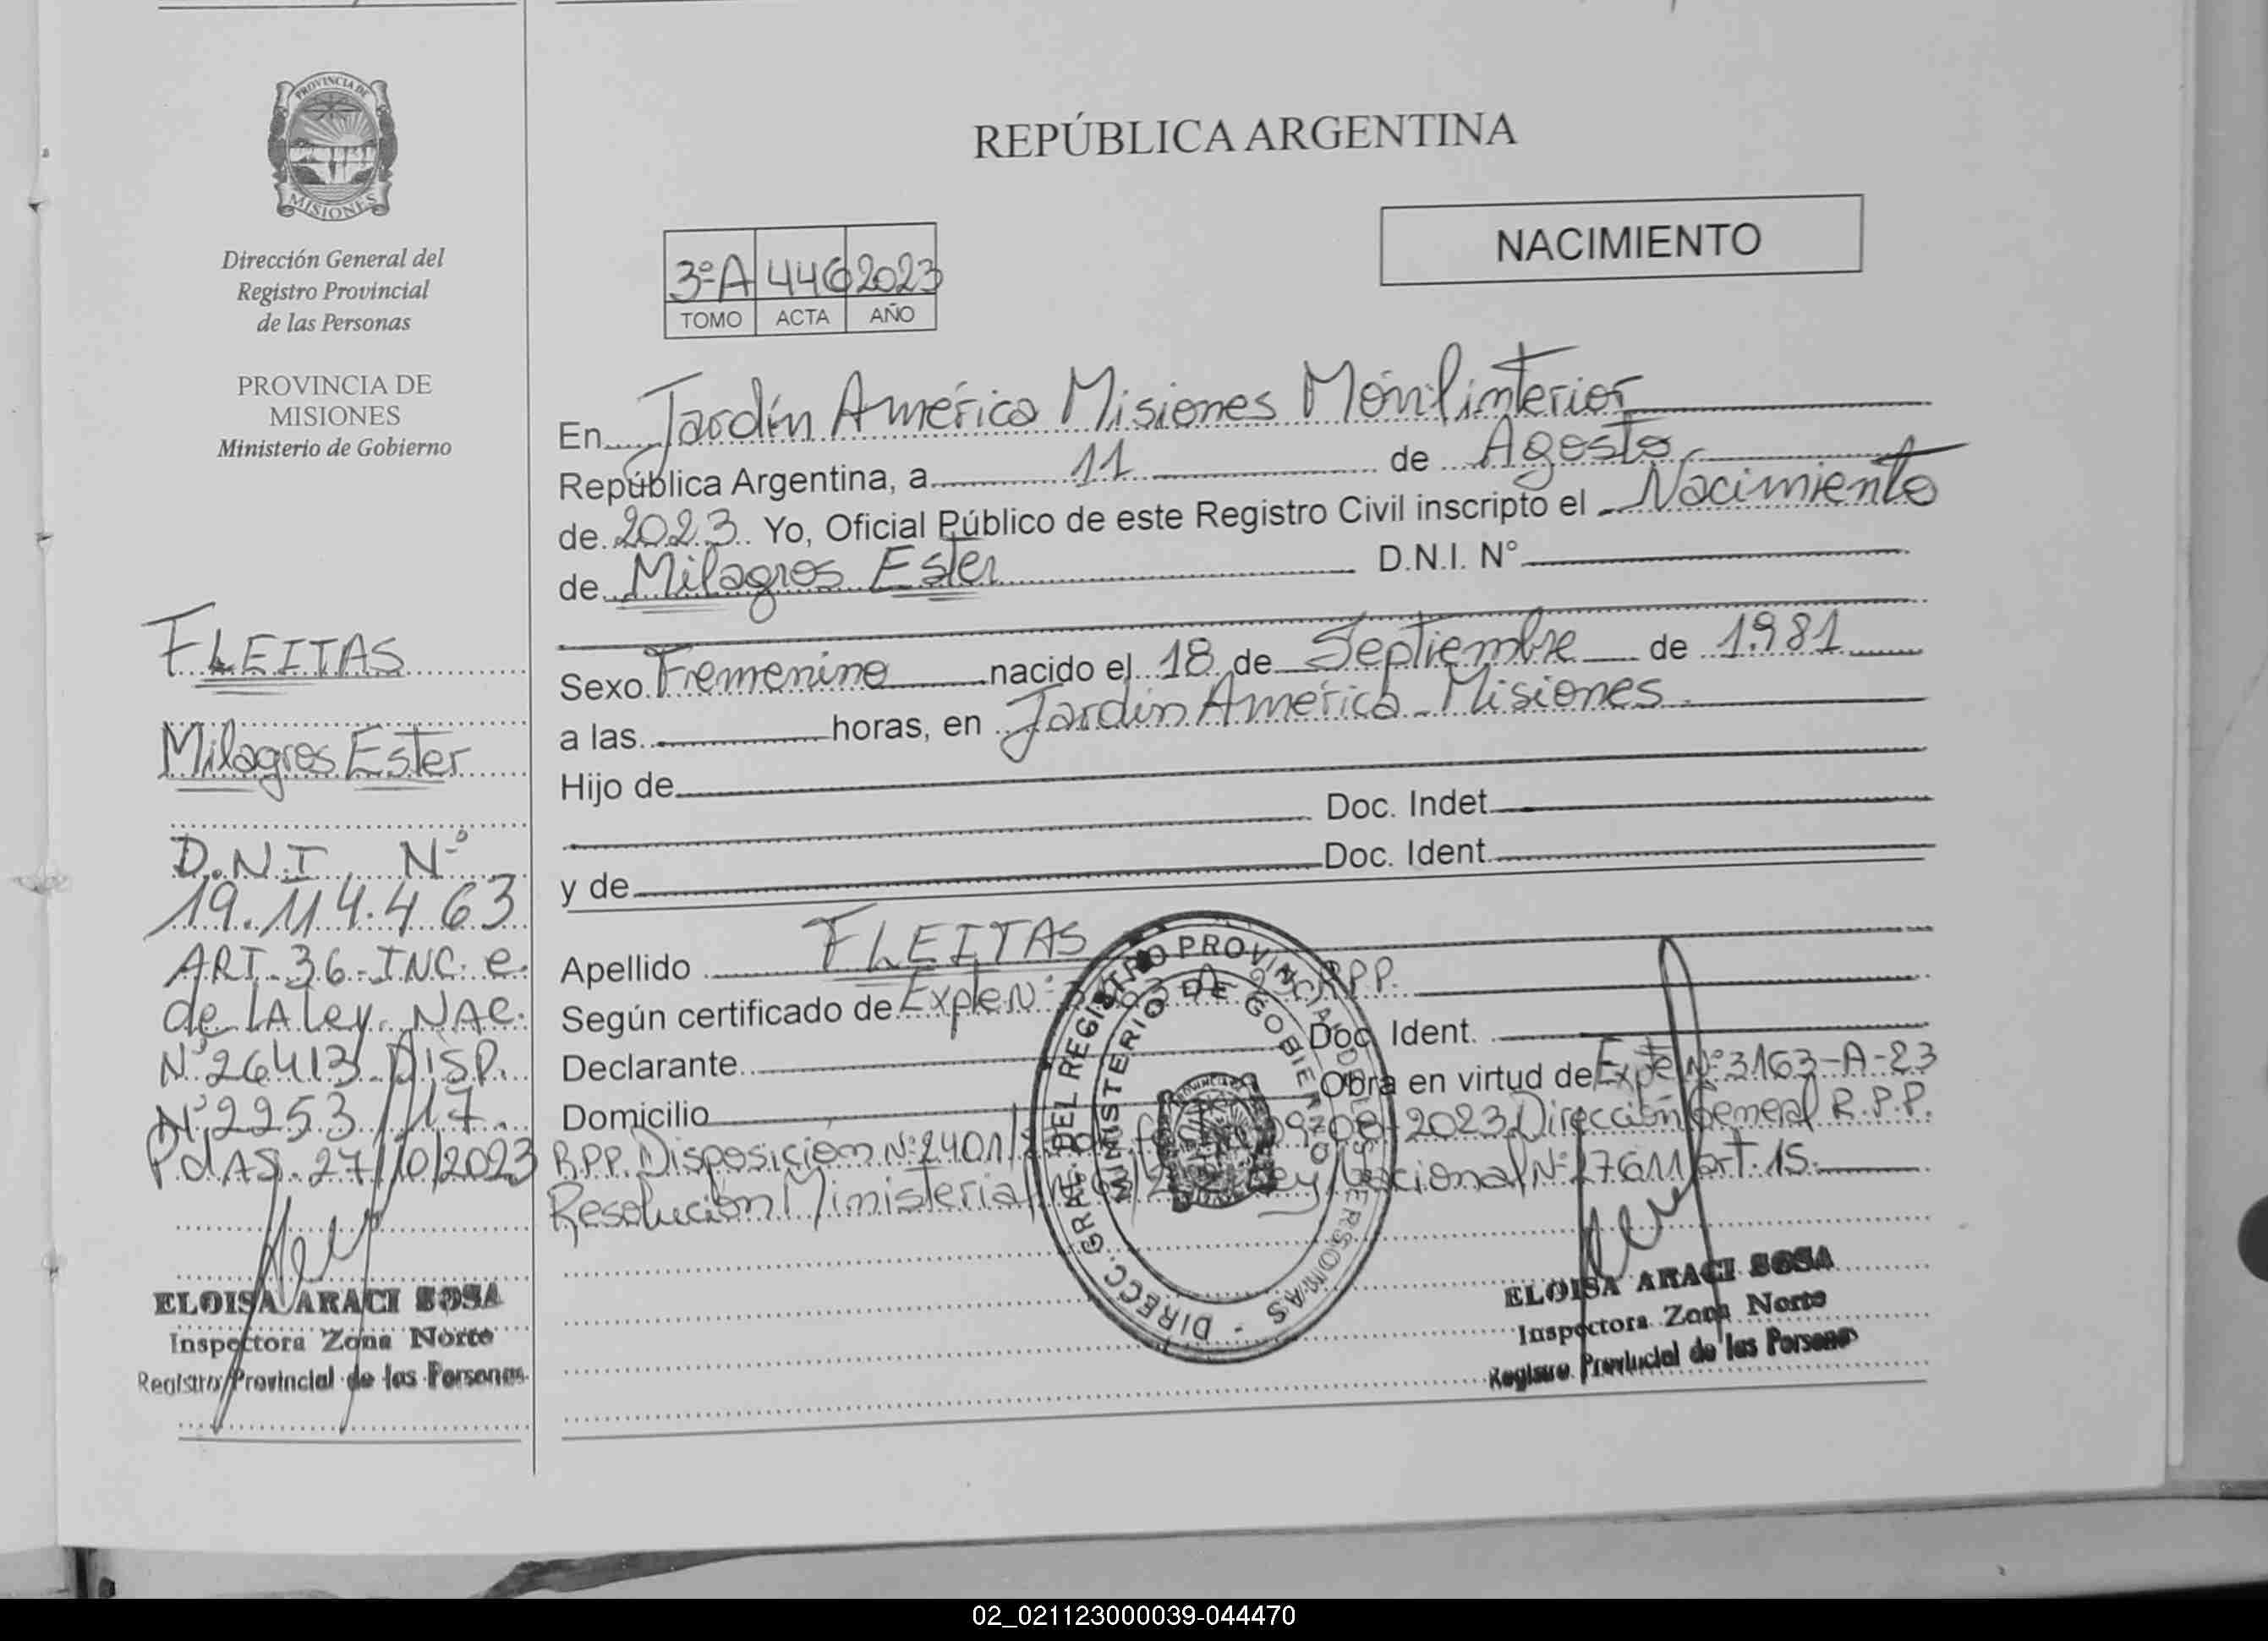 PROVINCIA DE
MISIONES
Dirección General del
Registro Provincial
de las Personas
PROVINCIA DE
MISIONES
Ministerio de Gobierno
FLEITAS
Milagros Ester
D.N.I. Nº
19.114.463
ART. 36-INC. e.
de LA ley. NAC.
Nº 26413 DISP.
Nº 2253/17.
PdAS. 27/10/2023
ELOISA ARACI SOSA
Inspectora Zona Norte
Registro Provincial de las Personas
REPÚBLICA ARGENTINA
NACIMIENTO
3ºA 446 2023
TOMO ACTA AÑO
En Jardín América Misiones Móvil interior
República Argentina, a 11 de Agosto
de 2023 Yo, Oficial Público de este Registro Civil inscripto el Nacimiento
de Milagros Ester D.N.I. Nº
Sexo Femenino nacido el 18 de Septiembre de 1.981
a las horas, en Jardín América - Misiones
Hijo de
Doc. Indet.
y de Doc. Ident.
Apellido FLEITAS
Según certificado de Expte Nº RPP.
Declarante Doc. Ident.
Domicilio Obra en virtud de Expte Nº 3163-A-23
R.P.P. Disposición Nº 2401/ 09-08-2023 Dirección General R.P.P.
Resolución Ministerial Ley Nacional Nº 27611 art. 15.
DIREC. GRAL. DEL REGISTRO PROVINCIAL DE LAS PERSONAS
MINISTERIO DE GOBIERNO
ELOISA ARACI SOSA
Inspectora Zona Norte
Registro Provincial de las Personas
02_021123000039-044470